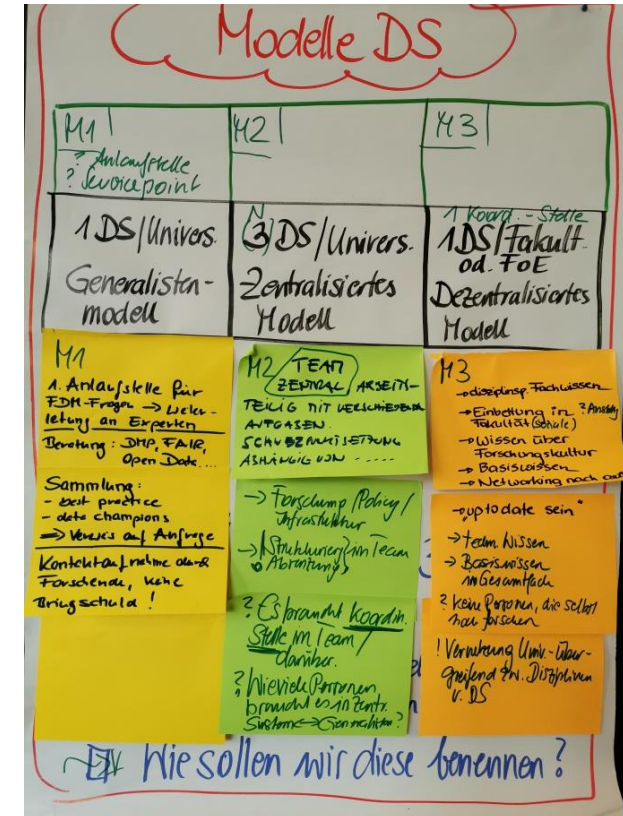 Modelle DS
M1
? Anlaufstelle
? Servicepoint
M2
M3
1 DS/Univers.
Generalisten-
modell
N
(3) DS/Univers.
Zentralisiertes
Modell
1 Koord.-Stelle
1 DS/Fakult.
od. FoE
Dezentralisiertes
Modell
M1
1. Anlaufstelle für
FDM-Fragen → Weiter-
leitung an Experten
Beratung: DMP, FAIR,
Open Data....
Sammlung:
- best practice
- data champions
⇒ Verweis auf Anfrage
Kontaktaufnahme durch
Forschende, keine
Bringschuld !
M2 TEAM
ZENTRAL ARBEITS-
TEILIG MIT VERSCHIEDENEN
AUFGABEN.
SCHWERPUNKTSETZUNG
ABHÄNGIG VON .....
→ Forschung/Policy/
Infrastruktur
im Team
? Es braucht Koordin.
Stelle im Team/
darüber.
? Wieviele Personen
braucht es in Zentr.
M3
→ disziplinsp. Fachwissen
→ Einbettung in
Fakultät (Schule)
→ Wissen über
Forschungskultur
→ Basiswissen
→ Networking nach
→ "up to date sein"
→ team Wissen
→ Basiswissen
im Gesamtfach
? keine Personen, die selbst
noch forschen
! Vernetzung Univ.-über-
greifend zw. Disziplinen
v. DS
Wie sollen wir diese benennen?